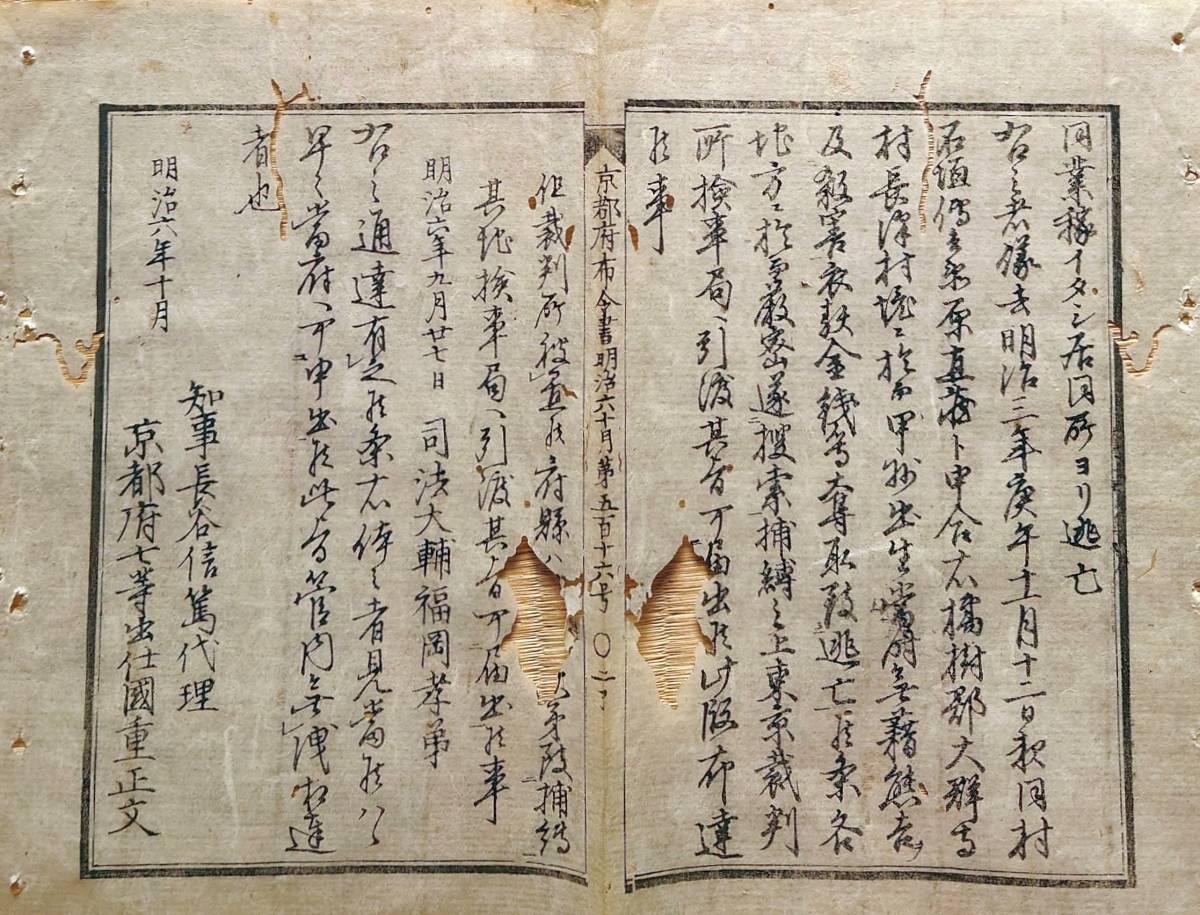 同業稼イタシ居同所ヨリ逃亡
右之者儀去明治三年庚午十一月十二日夜同村
石垣傳 原直 ト申合右橘樹郡大 
村長津村境ニ於而甲州出生當府無籍熊吉
及殺害衣類金錢等奪取致逃亡候条各
地方ニ於而厳密遂搜索捕縛之上東京裁判
所検事局ヘ引渡其旨可届出候此段布達
候事
京都府布令書明治六十月第五百十六号〇二
但裁判所被置候府縣ハ 捕縛
其地検事局ヘ引渡其旨可届出候事
明治六年九月廿七日 司法大輔福岡孝弟
右之通達有之候条右体之者見當候ハヽ
早々當府ヘ可申出候此旨管内無洩相達
者也
明治六年十月
知事長谷信篤代理
京都府七等出仕國重正文